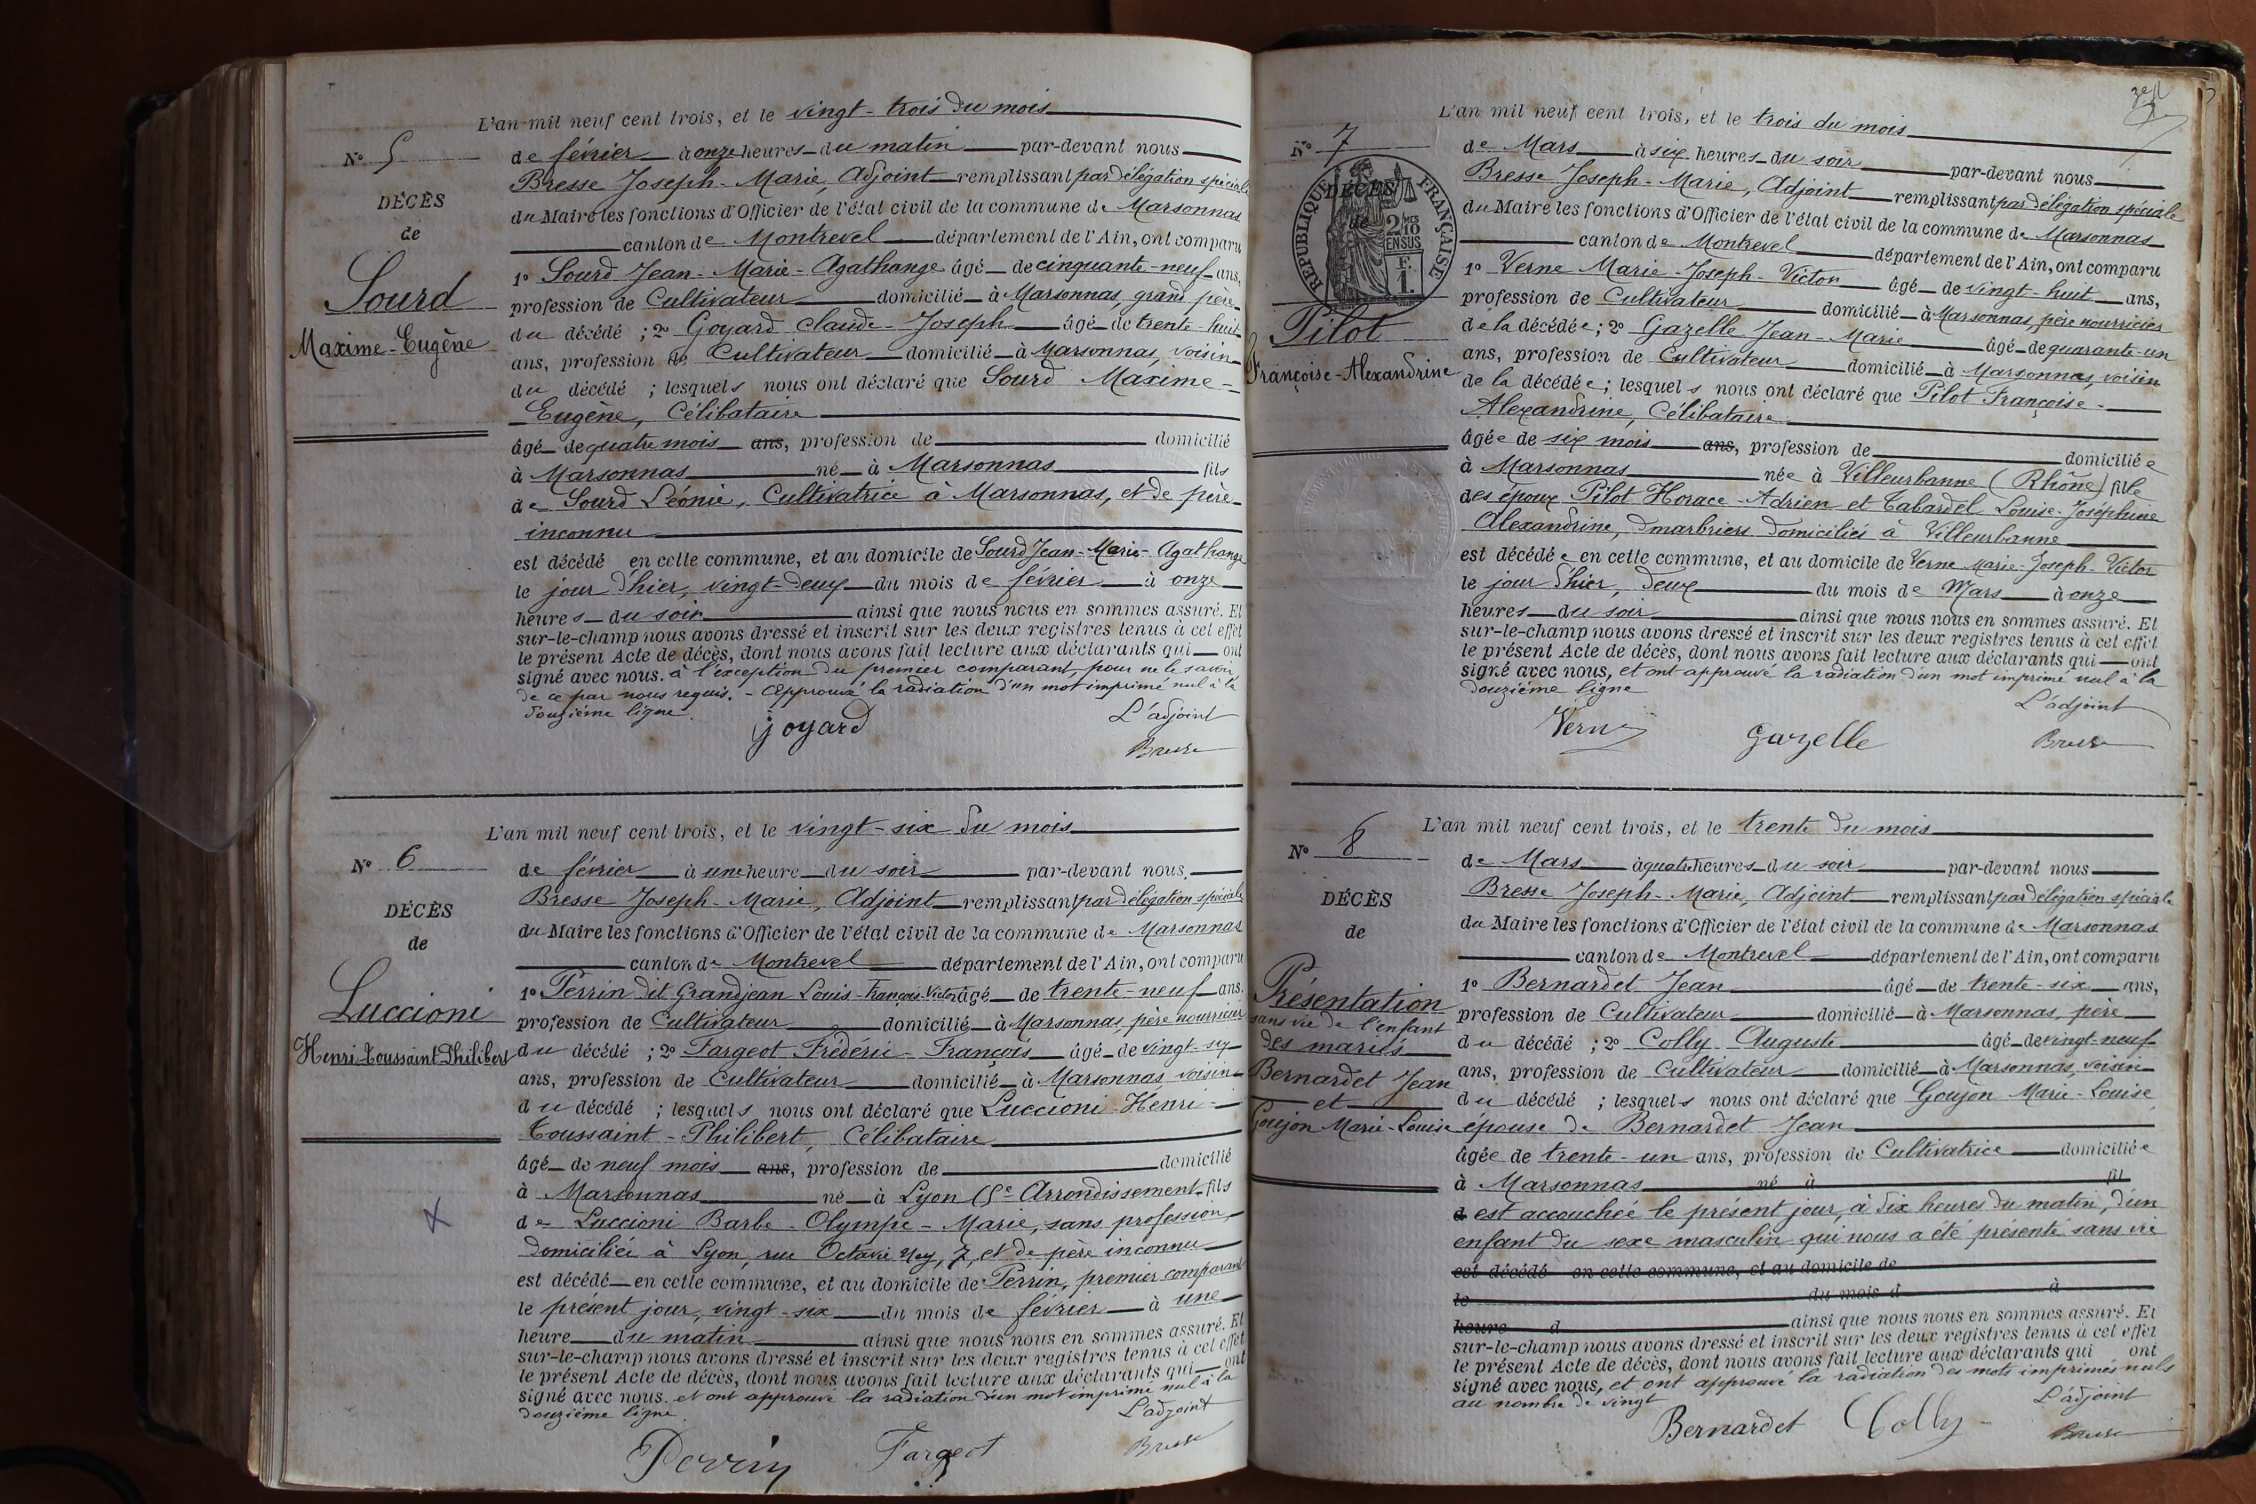 L'an mil neuf cent trois, et le vingt-trois du mois
N° 5
de février à onze heures du matin par-devant nous
Bresse Joseph-Marie, Adjoint remplissant par délégation spéciale
DÉCÈS
du Maire les fonctions d'Officier de l'état civil de la commune de Marsonnas
de
canton de Montrevel département de l'Ain, ont comparu
Sourd
Maxime-Eugène
1° Sourd Jean-Marie-Agathange âgé de cinquante-neuf ans,
profession de Cultivateur domicilié à Marsonnas, grand père
du décédé ; 2° Goyard Claude-Joseph âgé de trente-huit
ans, profession de Cultivateur domicilié à Marsonnas, voisin
du décédé ; lesquels nous ont déclaré que Sourd Maxime-
Eugène, Célibataire
âgé de quatre mois ans, profession de domicilié
à Marsonnas né à Marsonnas fils
de Sourd Léonie, Cultivatrice à Marsonnas, et de père
inconnu
est décédé en cette commune, et au domicile de Sourd Jean-Marie-Agathange
le jour d'hier, vingt-deux du mois de février à onze
heures du soir ainsi que nous nous en sommes assuré. Et
sur-le-champ nous avons dressé et inscrit sur les deux registres tenus à cet effet
le présent Acte de décès, dont nous avons fait lecture aux déclarants qui ont
signé avec nous. à l'exception du premier comparant, pour ne le savoir
de ce par nous requis. - Approuvé la radiation d'un mot imprimé nul à la
douzième ligne.
L'adjoint
Goyard
Bresse
L'an mil neuf cent trois, et le vingt-six du mois
N° 6
de février à une heure du soir par-devant nous
Bresse Joseph-Marie, Adjoint remplissant par délégation spéciale
DÉCÈS
du Maire les fonctions d'Officier de l'état civil de la commune de Marsonnas
de
canton de Montrevel département de l'Ain, ont comparu
Luccioni
Henri-Toussaint-Philibert
1° Perrin dit Grandjean Louis-François-Victor âgé de trente-neuf ans,
profession de Cultivateur domicilié à Marsonnas, père nourricier
du décédé ; 2° Fargeot Frédéric-François âgé de vingt-six
ans, profession de Cultivateur domicilié à Marsonnas, voisin
du décédé ; lesquels nous ont déclaré que Luccioni Henri-
Toussaint-Philibert, Célibataire
âgé de neuf mois ans, profession de domicilié
à Marsonnas né à Lyon (5e Arrondissement fils
de Luccioni Barbe-Olympe-Marie, sans profession,
domiciliée à Lyon, rue Octavie Mey, 7, et de père inconnu
est décédé en cette commune, et au domicile de Perrin, premier comparant
le présent jour, vingt-six du mois de février à une
heure du matin ainsi que nous nous en sommes assuré. Et
sur-le-champ nous avons dressé et inscrit sur les deux registres tenus à cet effet
le présent Acte de décès, dont nous avons fait lecture aux déclarants qui ont
signé avec nous. et ont approuvé la radiation d'un mot imprimé nul à la
douzième ligne.
L'adjoint
Perrin Fargeot Bresse
L'an mil neuf cent trois, et le trois du mois
N° 7
de Mars à six heures du soir par-devant nous
Bresse Joseph-Marie, Adjoint remplissant par délégation spéciale
DÉCÈS
de
RÉPUBLIQUE FRANÇAISE
2 MES
10
EN SUS
F.
1.
du Maire les fonctions d'Officier de l'état civil de la commune de Marsonnas
canton de Montrevel département de l'Ain, ont comparu
Pilot
Françoise-Alexandrine
1° Verne Marie-Joseph-Victor âgé de vingt-huit ans,
profession de Cultivateur domicilié à Marsonnas, père nourricier
de la décédée ; 2° Gazelle Jean-Marie âgé de quarante-un
ans, profession de Cultivateur domicilié à Marsonnas, voisin
de la décédée ; lesquels nous ont déclaré que Pilot Françoise-
Alexandrine, Célibataire
âgée de six mois ans, profession de domiciliée
à Marsonnas née à Villeurbanne (Rhône) fille
des époux Pilot Horace-Adrien et Tabardel Louise-Joséphine
Alexandrine, marbriers domiciliés à Villeurbanne
est décédée en cette commune, et au domicile de Verne Marie-Joseph-Victor
le jour d'hier, deux du mois de Mars à onze
heures du soir ainsi que nous nous en sommes assuré. Et
sur-le-champ nous avons dressé et inscrit sur les deux registres tenus à cet effet
le présent Acte de décès, dont nous avons fait lecture aux déclarants qui ont
signé avec nous, et ont approuvé la radiation d'un mot imprimé nul à la
douzième ligne
L'adjoint
Verne Gazelle Bresse
L'an mil neuf cent trois, et le trente du mois
N° 8
de Mars à quatre heures du soir par-devant nous
Bresse Joseph-Marie, Adjoint remplissant par délégation spéciale
DÉCÈS
du Maire les fonctions d'Officier de l'état civil de la commune de Marsonnas
de
canton de Montrevel département de l'Ain, ont comparu
Présentation
sans vie de l'enfant
des mariés
Bernardet Jean
et
Goujon Marie-Louise
1° Bernardet Jean âgé de trente-six ans,
profession de Cultivateur domicilié à Marsonnas, père
du décédé ; 2° Colly Auguste âgé de vingt-neuf
ans, profession de Cultivateur domicilié à Marsonnas, voisin
du décédé ; lesquels nous ont déclaré que Goujon Marie-Louise
épouse de Bernardet Jean
âgée de trente-un ans, profession de Cultivatrice domiciliée
à Marsonnas né à fil
d est accouchée le présent jour, à dix heures du matin, d'un
enfant du sexe masculin qui nous a été présenté sans vie
est décédé en cette commune, et au domicile de
le du mois d à
heure d ainsi que nous nous en sommes assuré. Et
sur-le-champ nous avons dressé et inscrit sur les deux registres tenus à cet effet
le présent Acte de décès, dont nous avons fait lecture aux déclarants qui ont
signé avec nous, et ont approuvé la radiation des mots imprimés nuls
au nombre de vingt
L'adjoint
Bernardet Colly Bresse